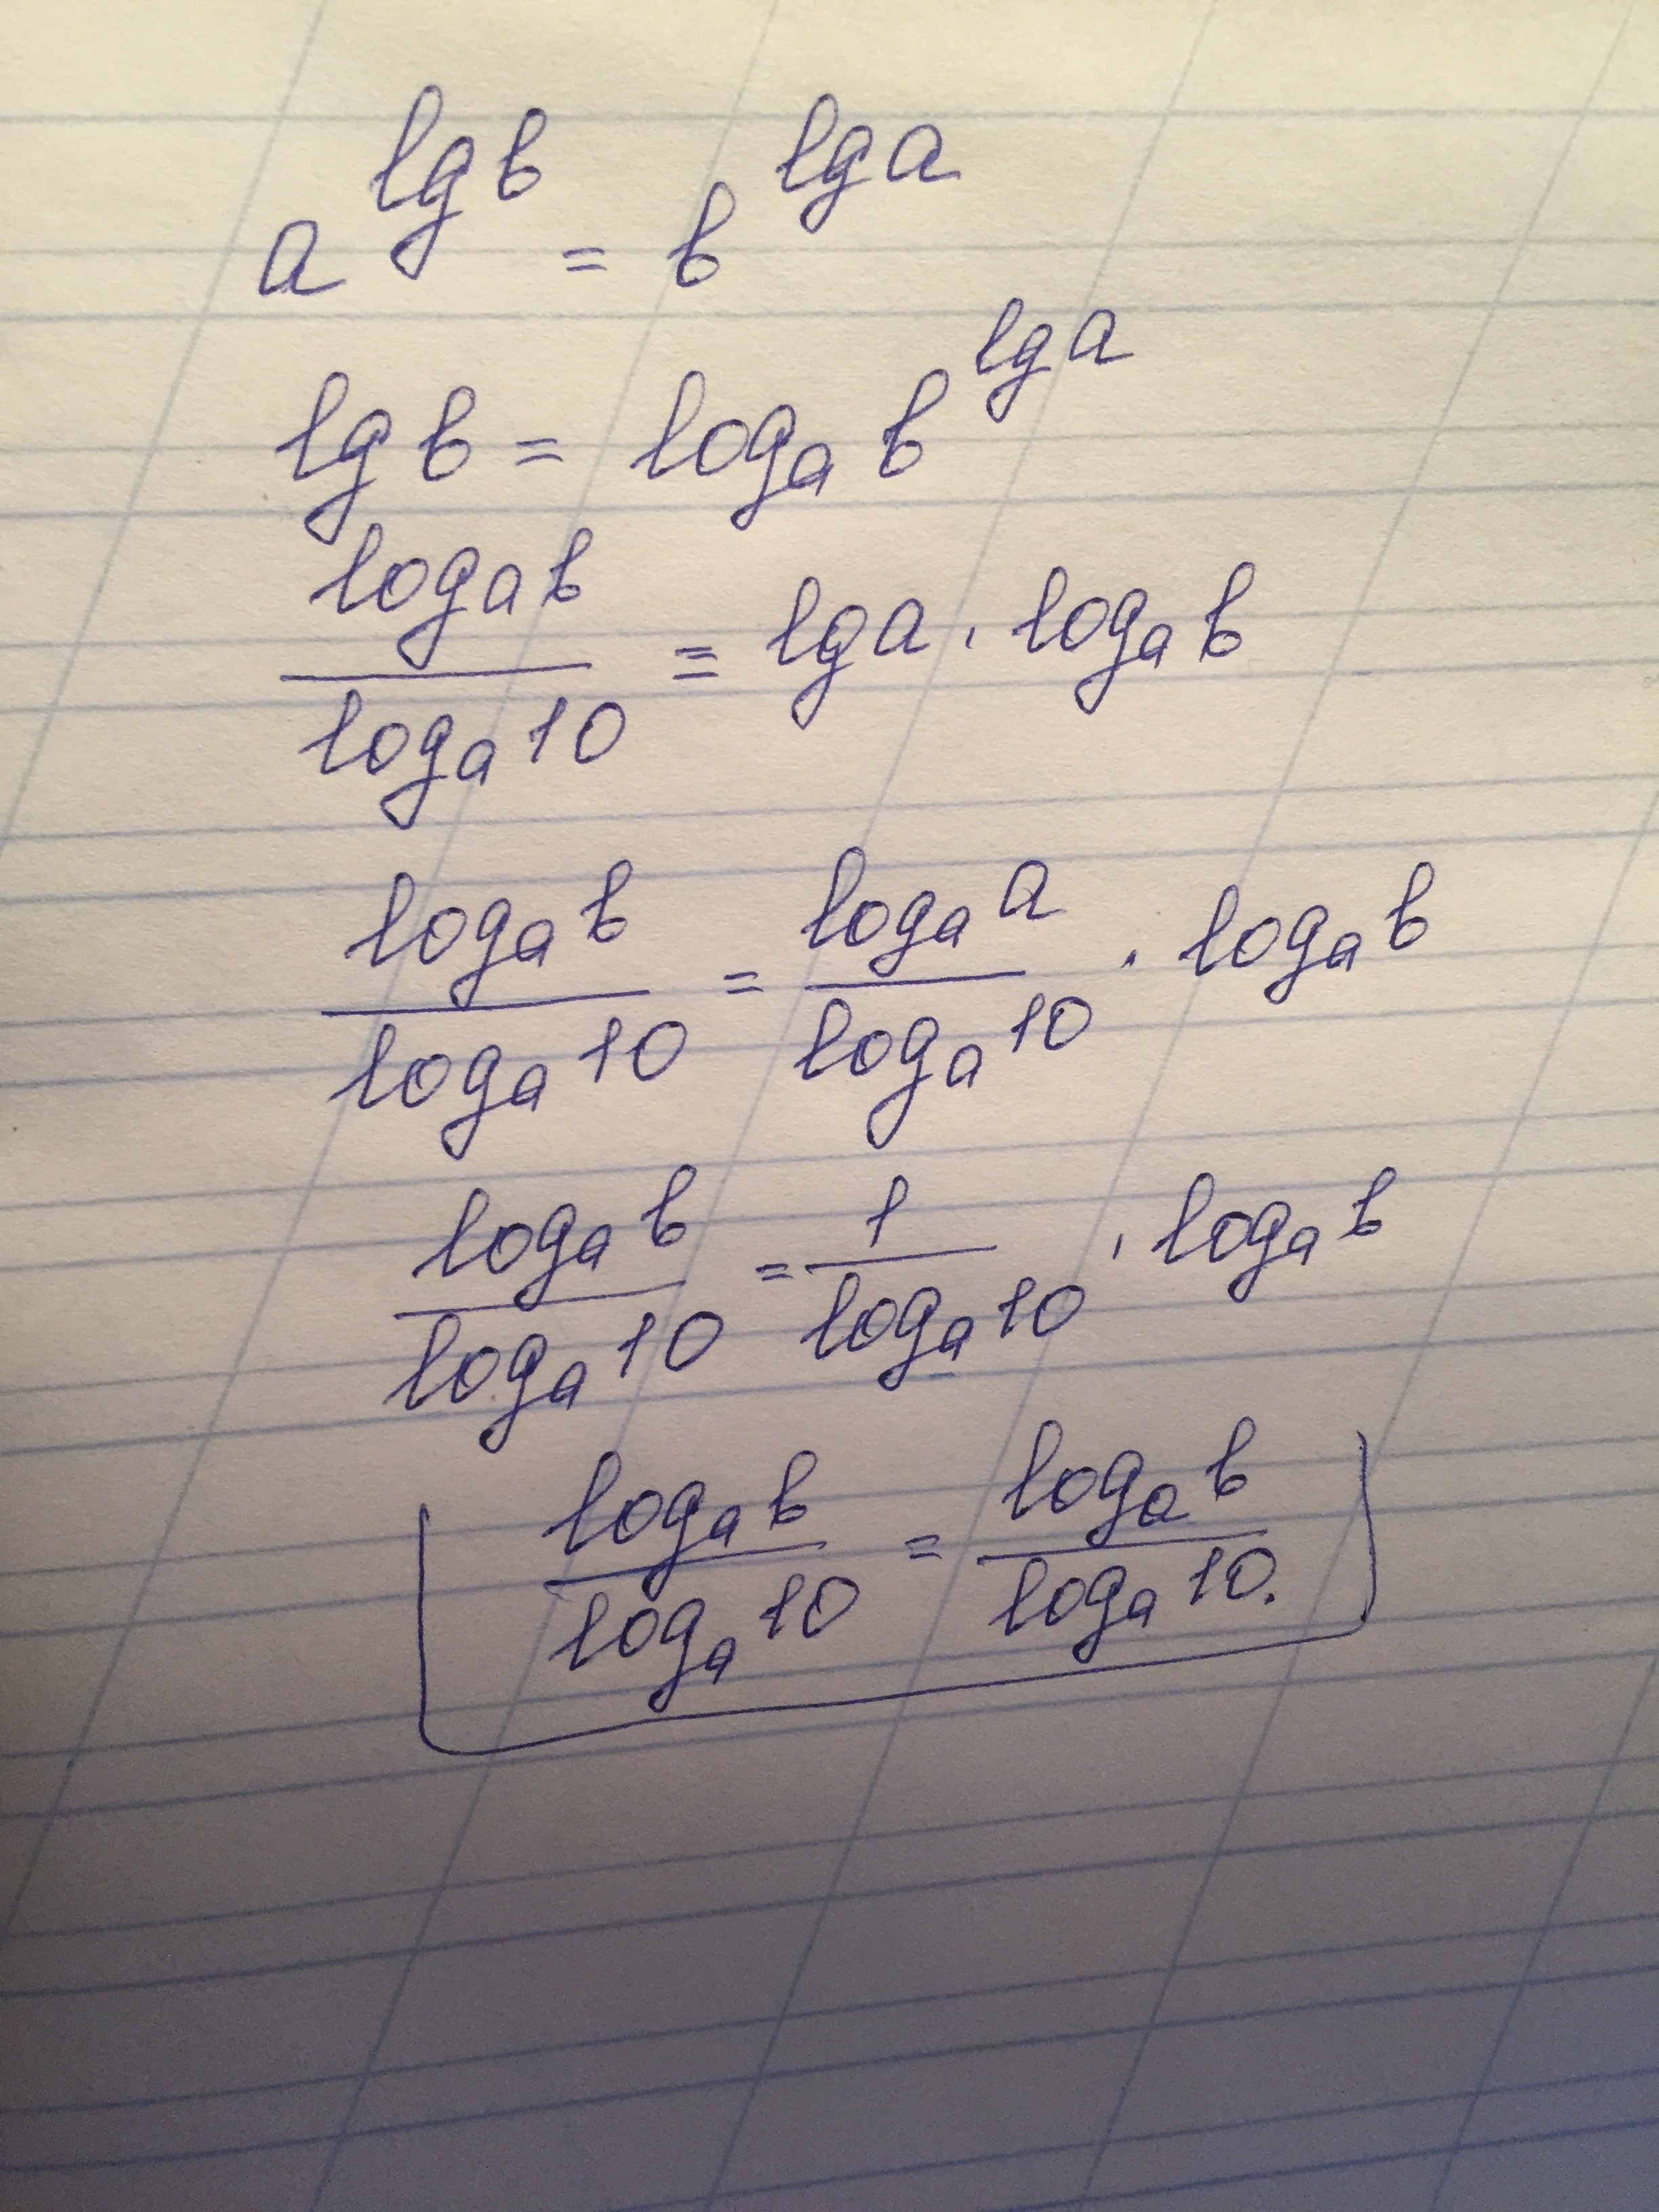 a^{lg b} = b^{lg a}
lg b = log_a b^{lg a}
\frac{log_a b}{log_a 10} = lg a · log_a b
\frac{log_a b}{log_a 10} = \frac{log_a a}{log_a 10} · log_a b
\frac{log_a b}{log_a 10} = \frac{1}{log_a 10} · log_a b
\frac{log_a b}{log_a 10} = \frac{log_a b}{log_a 10}.